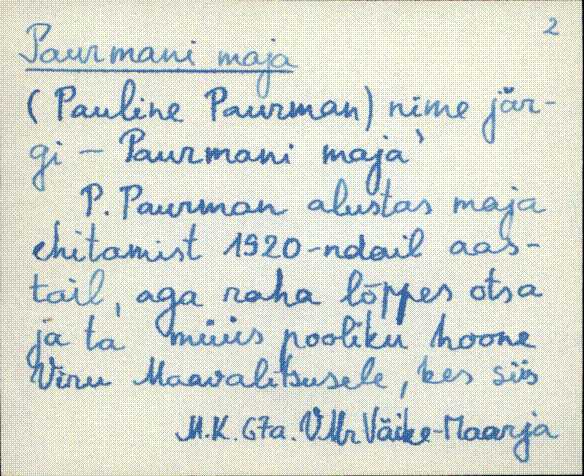 2
Paurmani maja
(Pauline Paurman) nime jär-
gi - Paurmani maja
P. Paurman alustas maja
ehitamist 1920-ndail aas-
tail, aga raha lõppes otsa
ja ta müüs pooliku hoone
Viru Maavalitsusele, kes siis
M.K. 67a. VMr Väike-Maarja